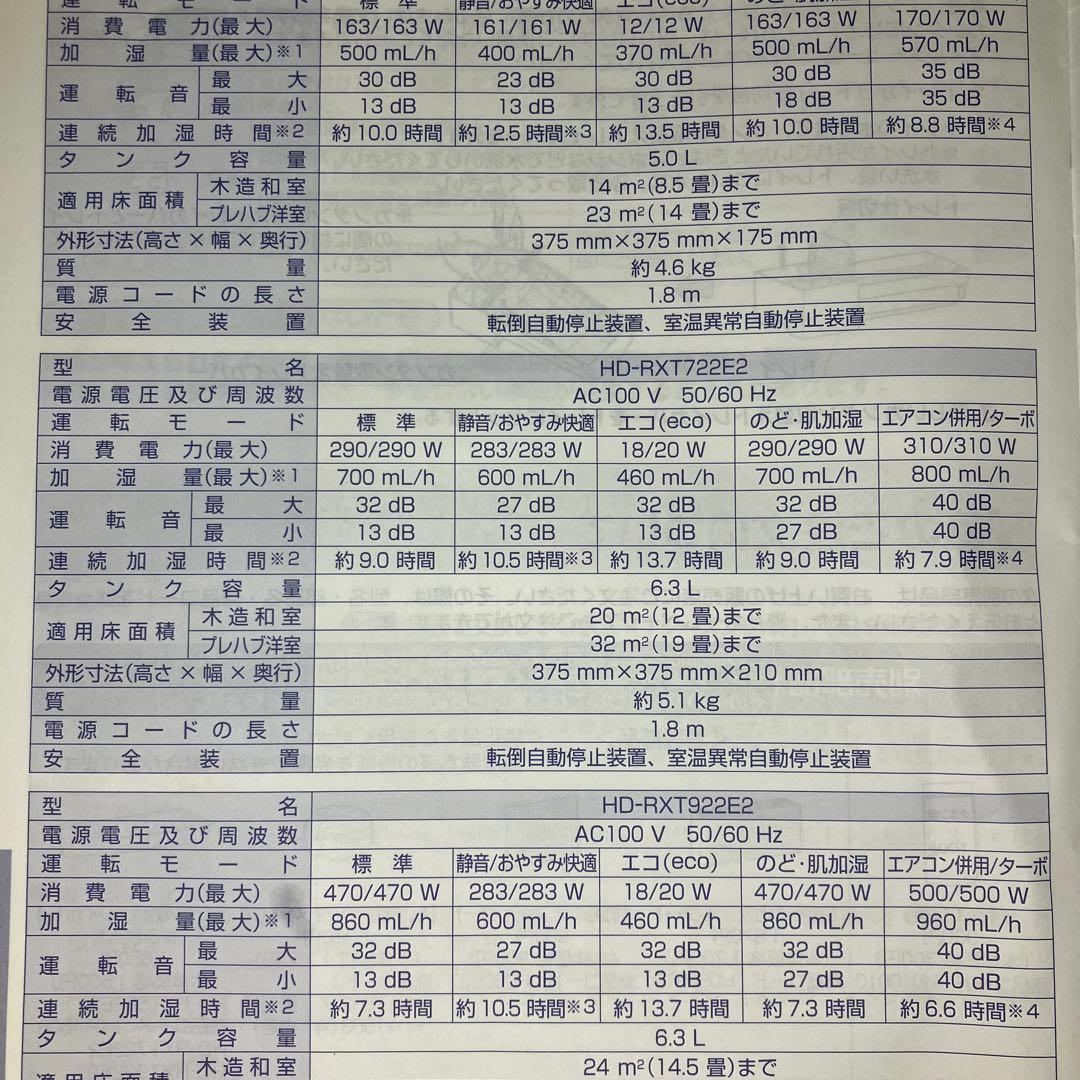 運転モード 標準 静音/おやすみ快適 エコ(eco) のど・肌加湿
消費電力(最大) 163/163 W 161/161 W 12/12 W 163/163 W 170/170 W
加湿量(最大)※1 500 mL/h 400 mL/h 370 mL/h 500 mL/h 570 mL/h
運転音 最大 30 dB 23 dB 30 dB 30 dB 35 dB
最小 13 dB 13 dB 13 dB 18 dB 35 dB
連続加湿時間※2 約10.0 時間 約12.5 時間※3 約13.5 時間 約10.0 時間 約8.8 時間※4
タンク容量 5.0 L
適用床面積 木造和室 14 m²(8.5 畳)まで
プレハブ洋室 23 m²(14 畳)まで
外形寸法(高さ×幅×奥行) 375 mm×375 mm×175 mm
質量 約4.6 kg
電源コードの長さ 1.8 m
安全装置 転倒自動停止装置、室温異常自動停止装置
型名 HD-RXT722E2
電源電圧及び周波数 AC100 V 50/60 Hz
運転モード 標準 静音/おやすみ快適 エコ(eco) のど・肌加湿 エアコン併用/ターボ
消費電力(最大) 290/290 W 283/283 W 18/20 W 290/290 W 310/310 W
加湿量(最大)※1 700 mL/h 600 mL/h 460 mL/h 700 mL/h 800 mL/h
運転音 最大 32 dB 27 dB 32 dB 32 dB 40 dB
最小 13 dB 13 dB 13 dB 27 dB 40 dB
連続加湿時間※2 約9.0 時間 約10.5 時間※3 約13.7 時間 約9.0 時間 約7.9 時間※4
タンク容量 6.3 L
適用床面積 木造和室 20 m²(12 畳)まで
プレハブ洋室 32 m²(19 畳)まで
外形寸法(高さ×幅×奥行) 375 mm×375 mm×210 mm
質量 約5.1 kg
電源コードの長さ 1.8 m
安全装置 転倒自動停止装置、室温異常自動停止装置
型名 HD-RXT922E2
電源電圧及び周波数 AC100 V 50/60 Hz
運転モード 標準 静音/おやすみ快適 エコ(eco) のど・肌加湿 エアコン併用/ターボ
消費電力(最大) 470/470 W 283/283 W 18/20 W 470/470 W 500/500 W
加湿量(最大)※1 860 mL/h 600 mL/h 460 mL/h 860 mL/h 960 mL/h
運転音 最大 32 dB 27 dB 32 dB 32 dB 40 dB
最小 13 dB 13 dB 13 dB 27 dB 40 dB
連続加湿時間※2 約7.3 時間 約10.5 時間※3 約13.7 時間 約7.3 時間 約6.6 時間※4
タンク容量 6.3 L
適用床面積 木造和室 24 m²(14.5 畳)まで